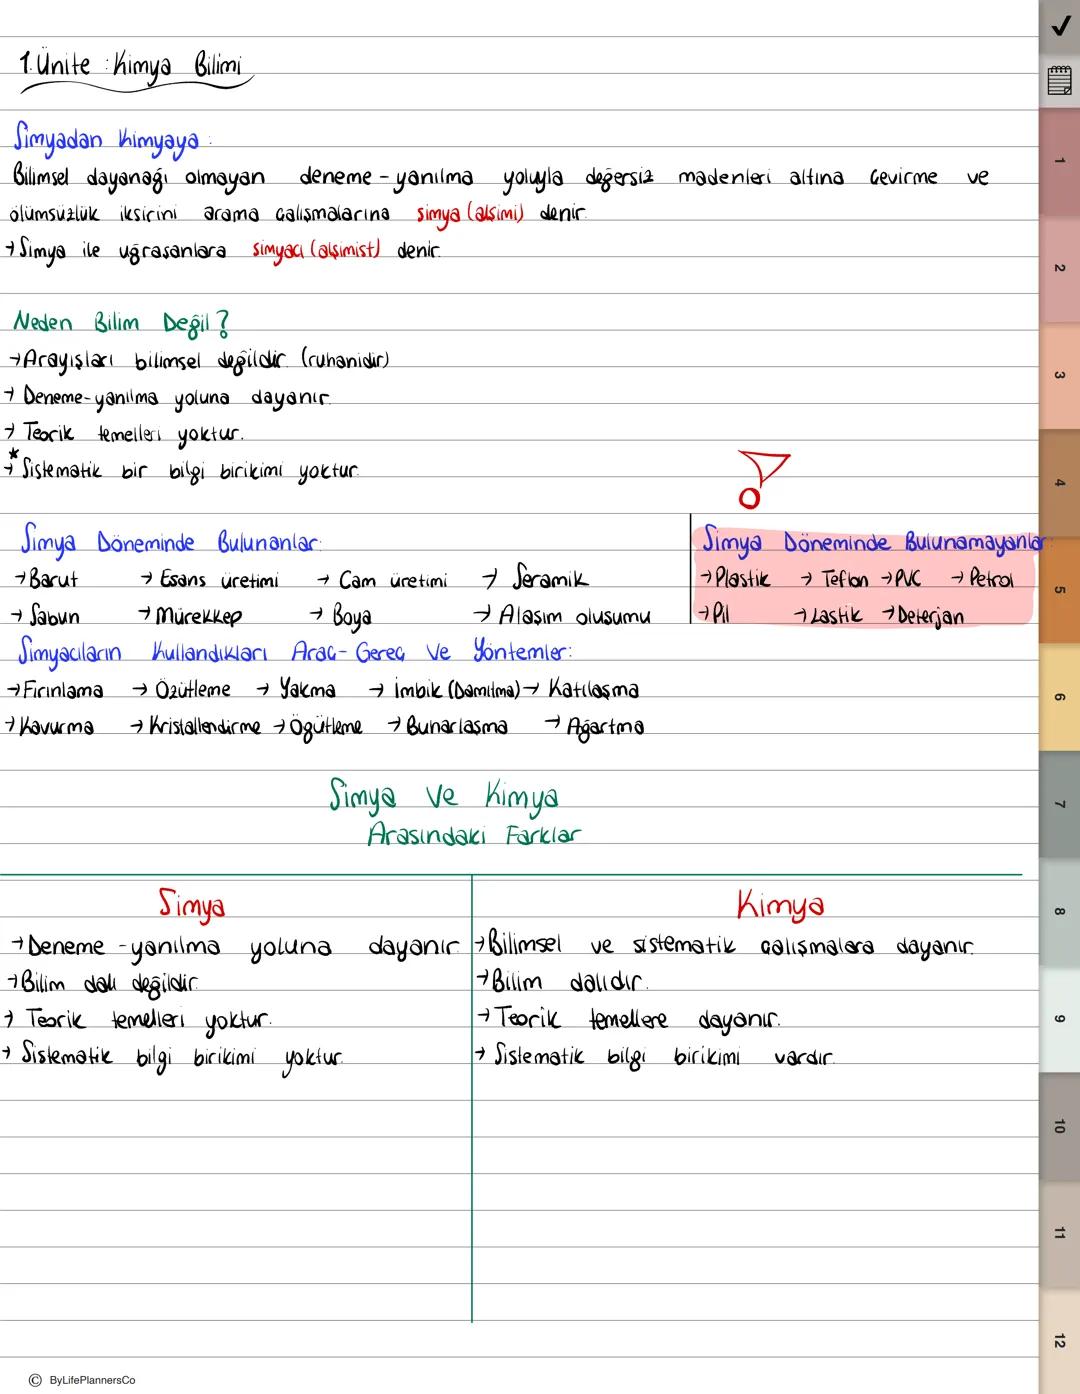 1.Ünite : Kimya Bilimi
Simyadan Kimyaya :
Bilimsel dayanağı olmayan deneme-yanılma yoluyla değersiz madenleri altına çevirme ve
ölümsüzlük iksirini arama çalışmalarına simya (alşimi) denir.
→ Simya ile uğraşanlara simyacı (alşimist) denir.
Neden Bilim Değil?
→ Arayışları bilimsel değildir. (ruhanidir)
→ Deneme-yanılma yoluna dayanır.
→ Teorik temelleri yoktur.
*→ Sistematik bir bilgi birikimi yoktur.
Simya Döneminde Bulunanlar:
→ Barut → Esans üretimi → Cam üretimi → Seramik
→ Sabun → Mürekkep → Boya → Alaşım oluşumu
Simya Döneminde Bulunamayanlar:
→ Plastik → Teflon → PVC → Petrol
→ Pil → Lastik → Deterjan
Simyacıların Kullandıkları Araç-Gereç Ve Yöntemler:
→ Fırınlama → Özütleme → Yakma → İmbik (Damıtma) → Katılaşma
→ Kavurma → Kristallendirme → Öğütleme → Buharlaşma → Ağartma
Simya Ve Kimya
Arasındaki Farklar
Simya
→ Deneme-yanılma yoluna dayanır.
→ Bilim dalı değildir.
→ Teorik temelleri yoktur.
→ Sistematik bilgi birikimi yoktur.
Kimya
→ Bilimsel ve sistematik çalışmalara dayanır.
→ Bilim dalıdır.
→ Teorik temellere dayanır.
→ Sistematik bilgi birikimi vardır.
1
2
3
4
5
6
7
8
9
10
11
12
© ByLifePlannersCo